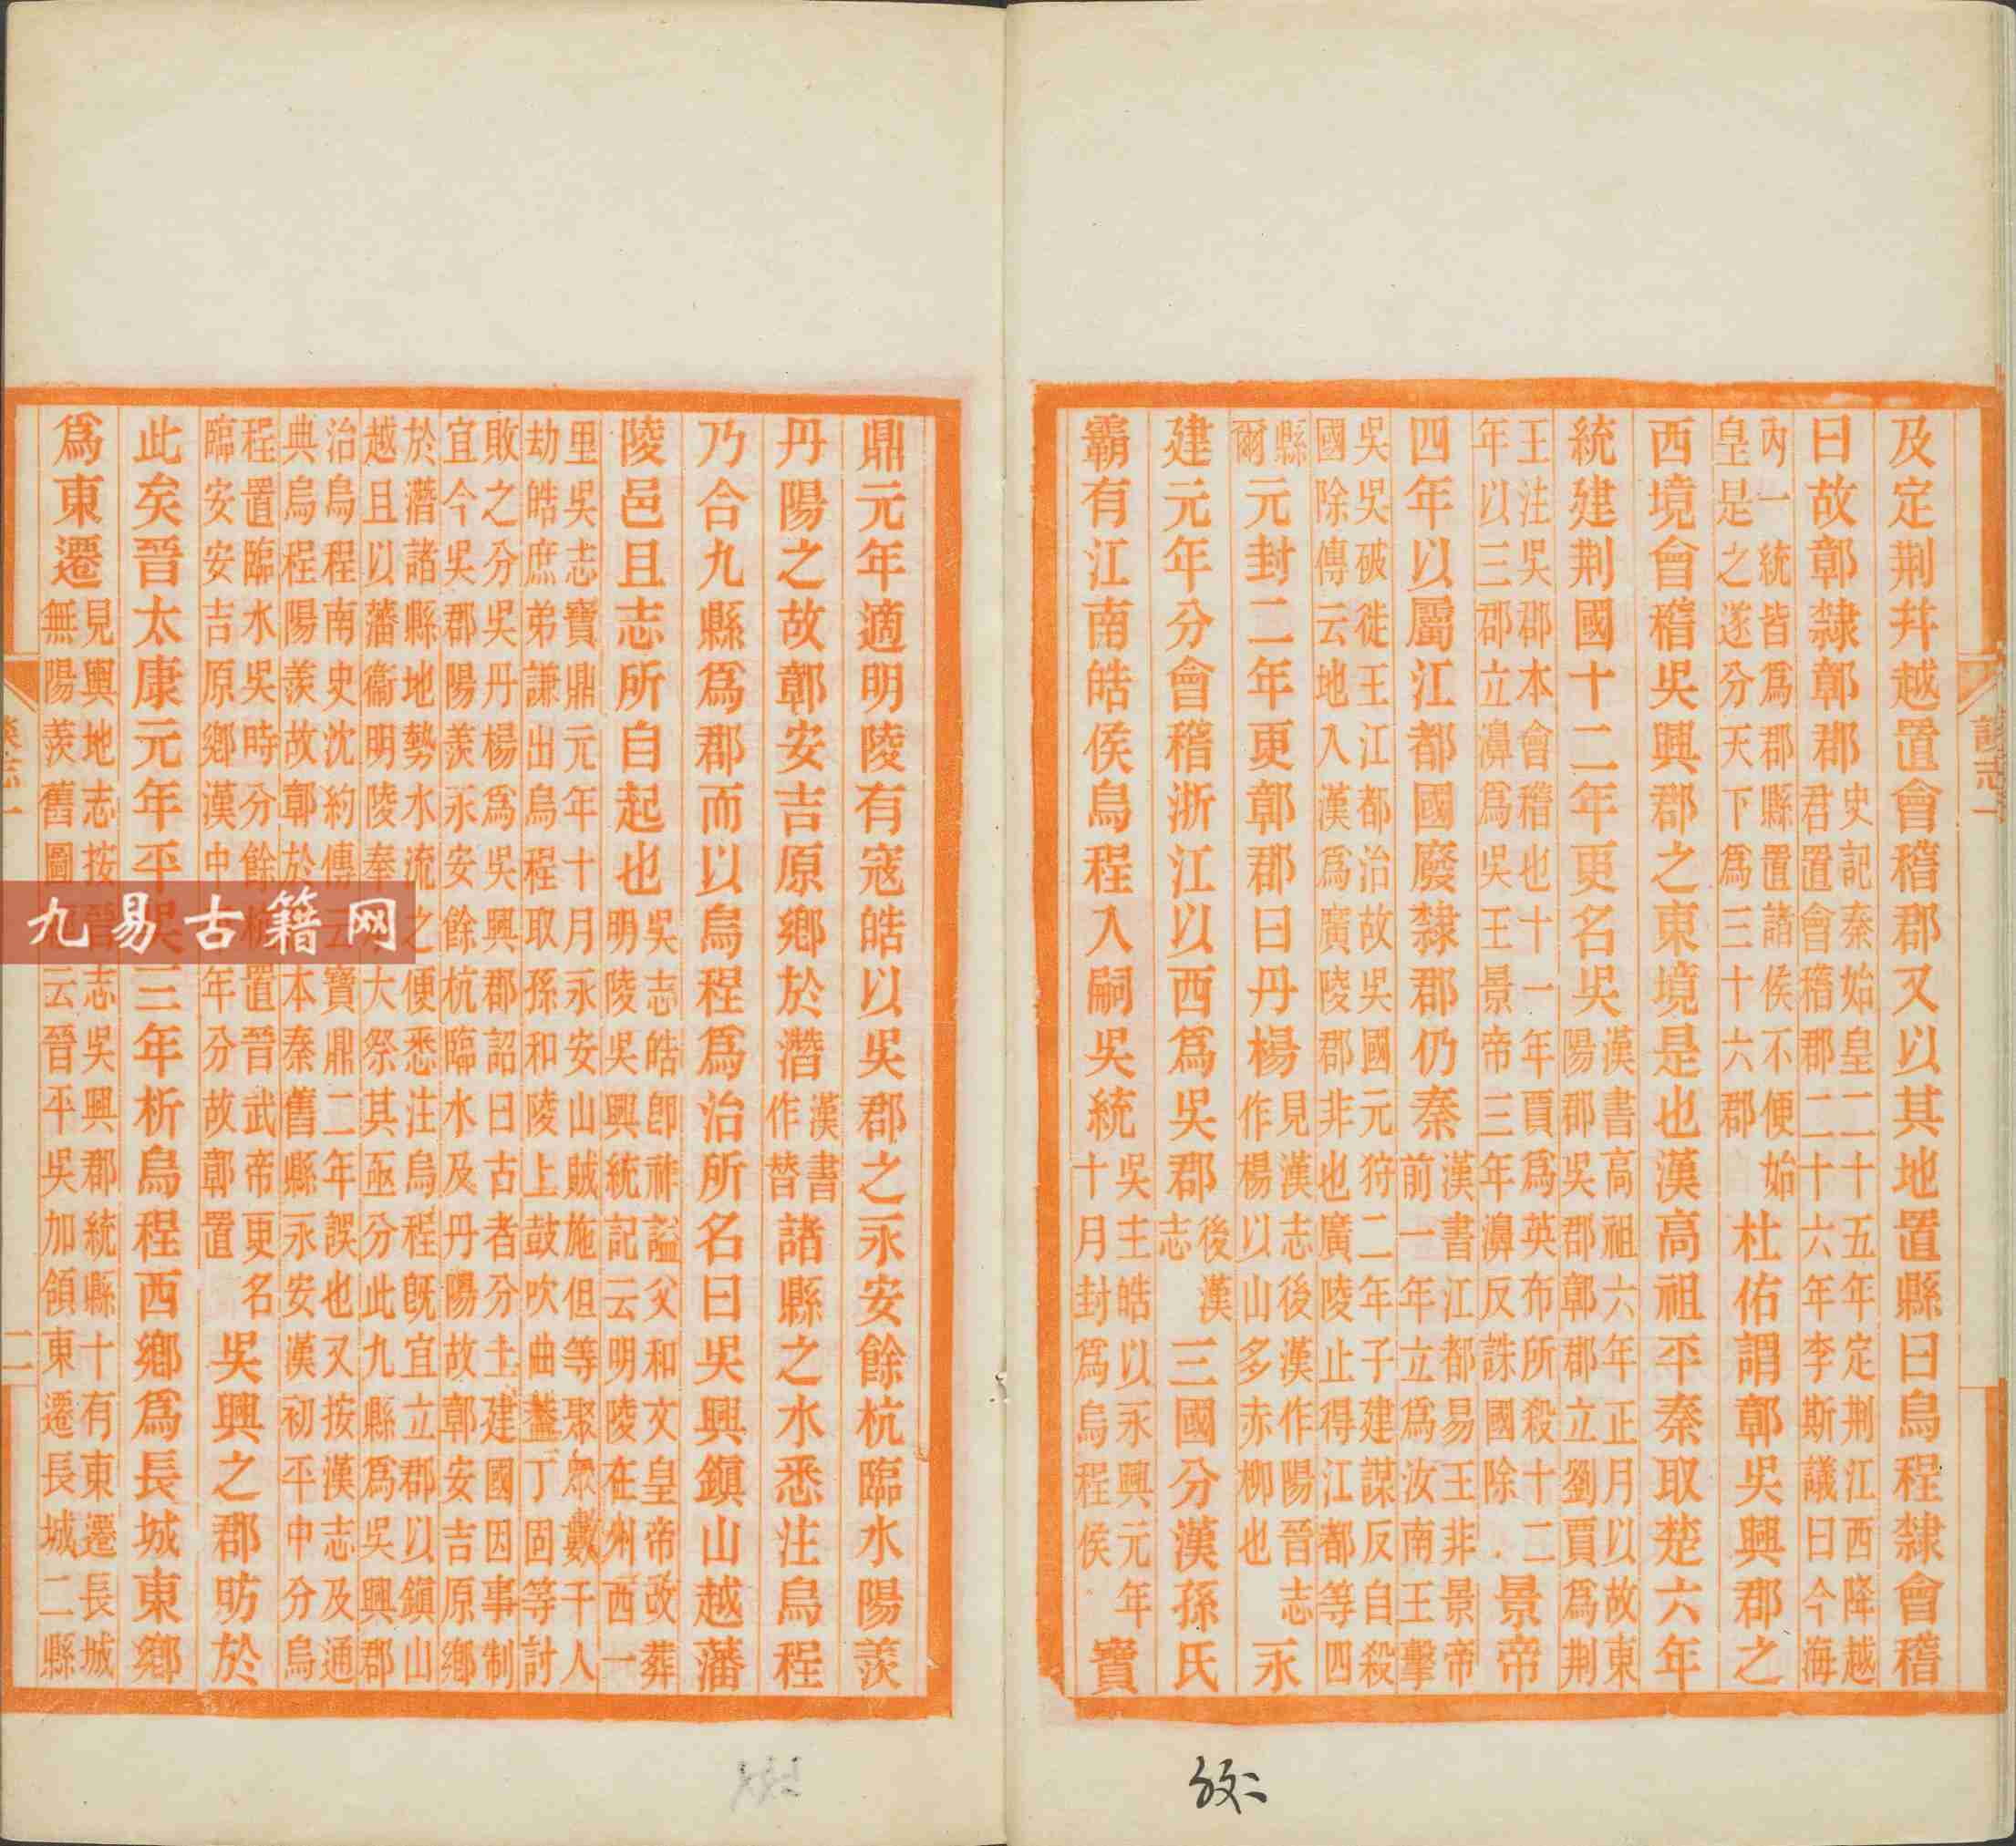 及定荆幷越置會稽郡又以其地置縣曰烏程隸會稽
曰故鄣隸鄣郡史記秦始皇二十五年定荆江西降越君置會稽郡二十六年李斯議曰今海
內一統皆爲郡縣置諸侯不便始皇是之遂分天下爲三十六郡杜佑謂鄣吳興郡之
西境會稽吳興郡之東境是也漢高祖平秦取楚六年
統建荆國十二年更名吳漢書高祖六年正月以故東陽郡吳郡鄣郡立劉賈爲荆
王注吳郡本會稽也十一年賈爲英布所殺十二年以三郡立濞爲吳王景帝三年濞反誅國除景帝
四年以屬江都國廢隸郡仍秦漢書江都易王非景帝前一年立爲汝南王擊
吳吳破徙王江都治故吳國元狩二年子建謀反自殺國除傳云地入漢爲廣陵郡非也廣陵止得江都等四
縣爾元封二年更鄣郡曰丹楊見漢志後漢作陽晉志作楊以山多赤柳也永
建元年分會稽浙江以西爲吳郡後漢志三國分漢孫氏
霸有江南皓侯烏程入嗣吳統吳主皓以永興元年十月封爲烏程侯寶
鼎元年適明陵有寇皓以吳郡之永安餘杭臨水陽羨
丹陽之故鄣安吉原鄉於潛漢書作朁諸縣之水悉注烏程
乃合九縣爲郡而以烏程爲治所名曰吳興鎭山越藩
陵邑且志所自起也吳志皓卽祚謚父和文皇帝改葬明陵吳興統記云明陵在州西一
里吳志寶鼎元年十月永安山賊施但等聚眾數千人劫皓庶弟謙出烏程取孫和陵上鼓吹曲葢丁固等討
敗之分吳丹楊爲吳興郡詔曰古者分土建國因事制宜今吳郡陽羨永安餘杭臨水及丹陽故鄣安吉原鄉
於潛諸縣地勢水流之便悉注烏程旣宜立郡以鎭山越且以藩衞明陵奉大祭其亟分此九縣爲吳興郡
治烏程南史沈約傳云寶鼎二年誤也又按漢志及通典烏程陽羨故鄣於本秦舊縣永安漢初平中分烏
程置臨水吳時分餘杭置晉武帝更名臨安安吉原鄉漢中年分故鄣置吳興之郡昉於
此矣晉太康元年平吳三年析烏程西鄉爲長城東鄉
爲東遷見輿地志按晉志吳興郡統縣十有東遷長城無陽羨舊圖云晉平吳加領東遷長城二縣
談志一
二
九易古籍网